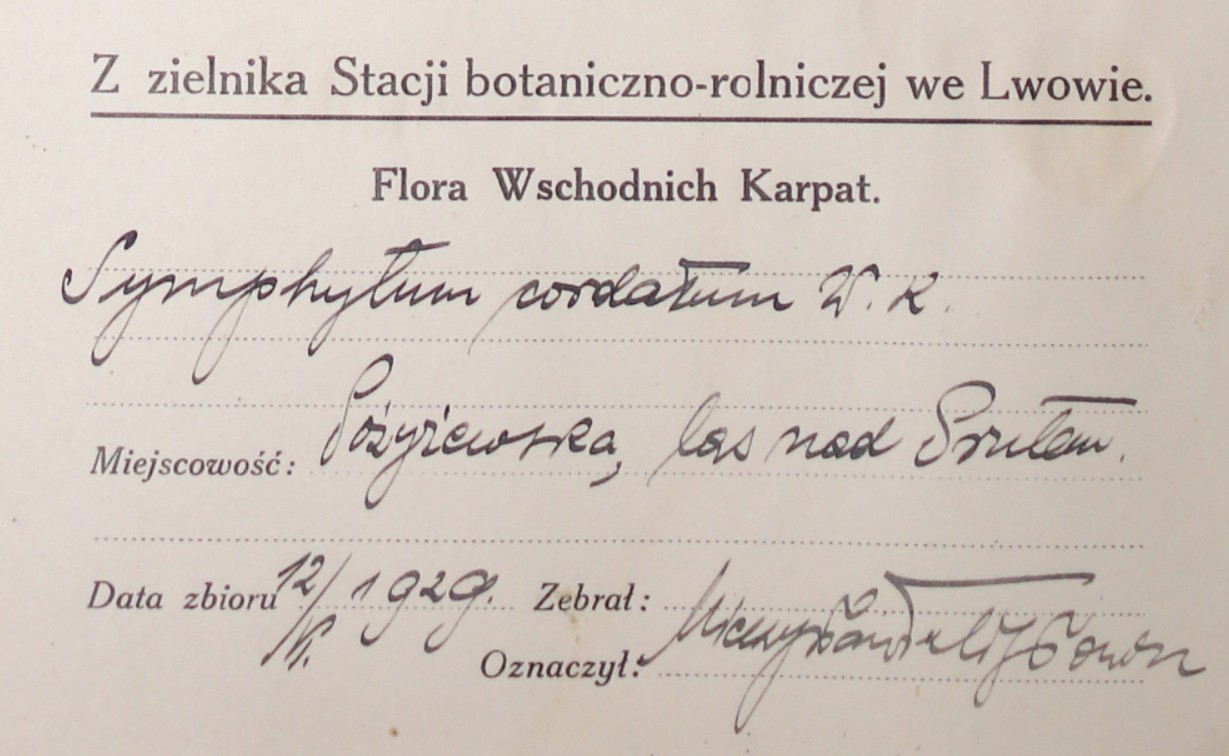 Z zielnika Stacji botaniczno-rolniczej we Lwowie.
Flora Wschodnich Karpat.
Symphytum cordatum W. K.
Miejscowość: Pożyżewska, las nad Prutem.
Data zbioru 12/ 1929. Zebrał:
Oznaczył: